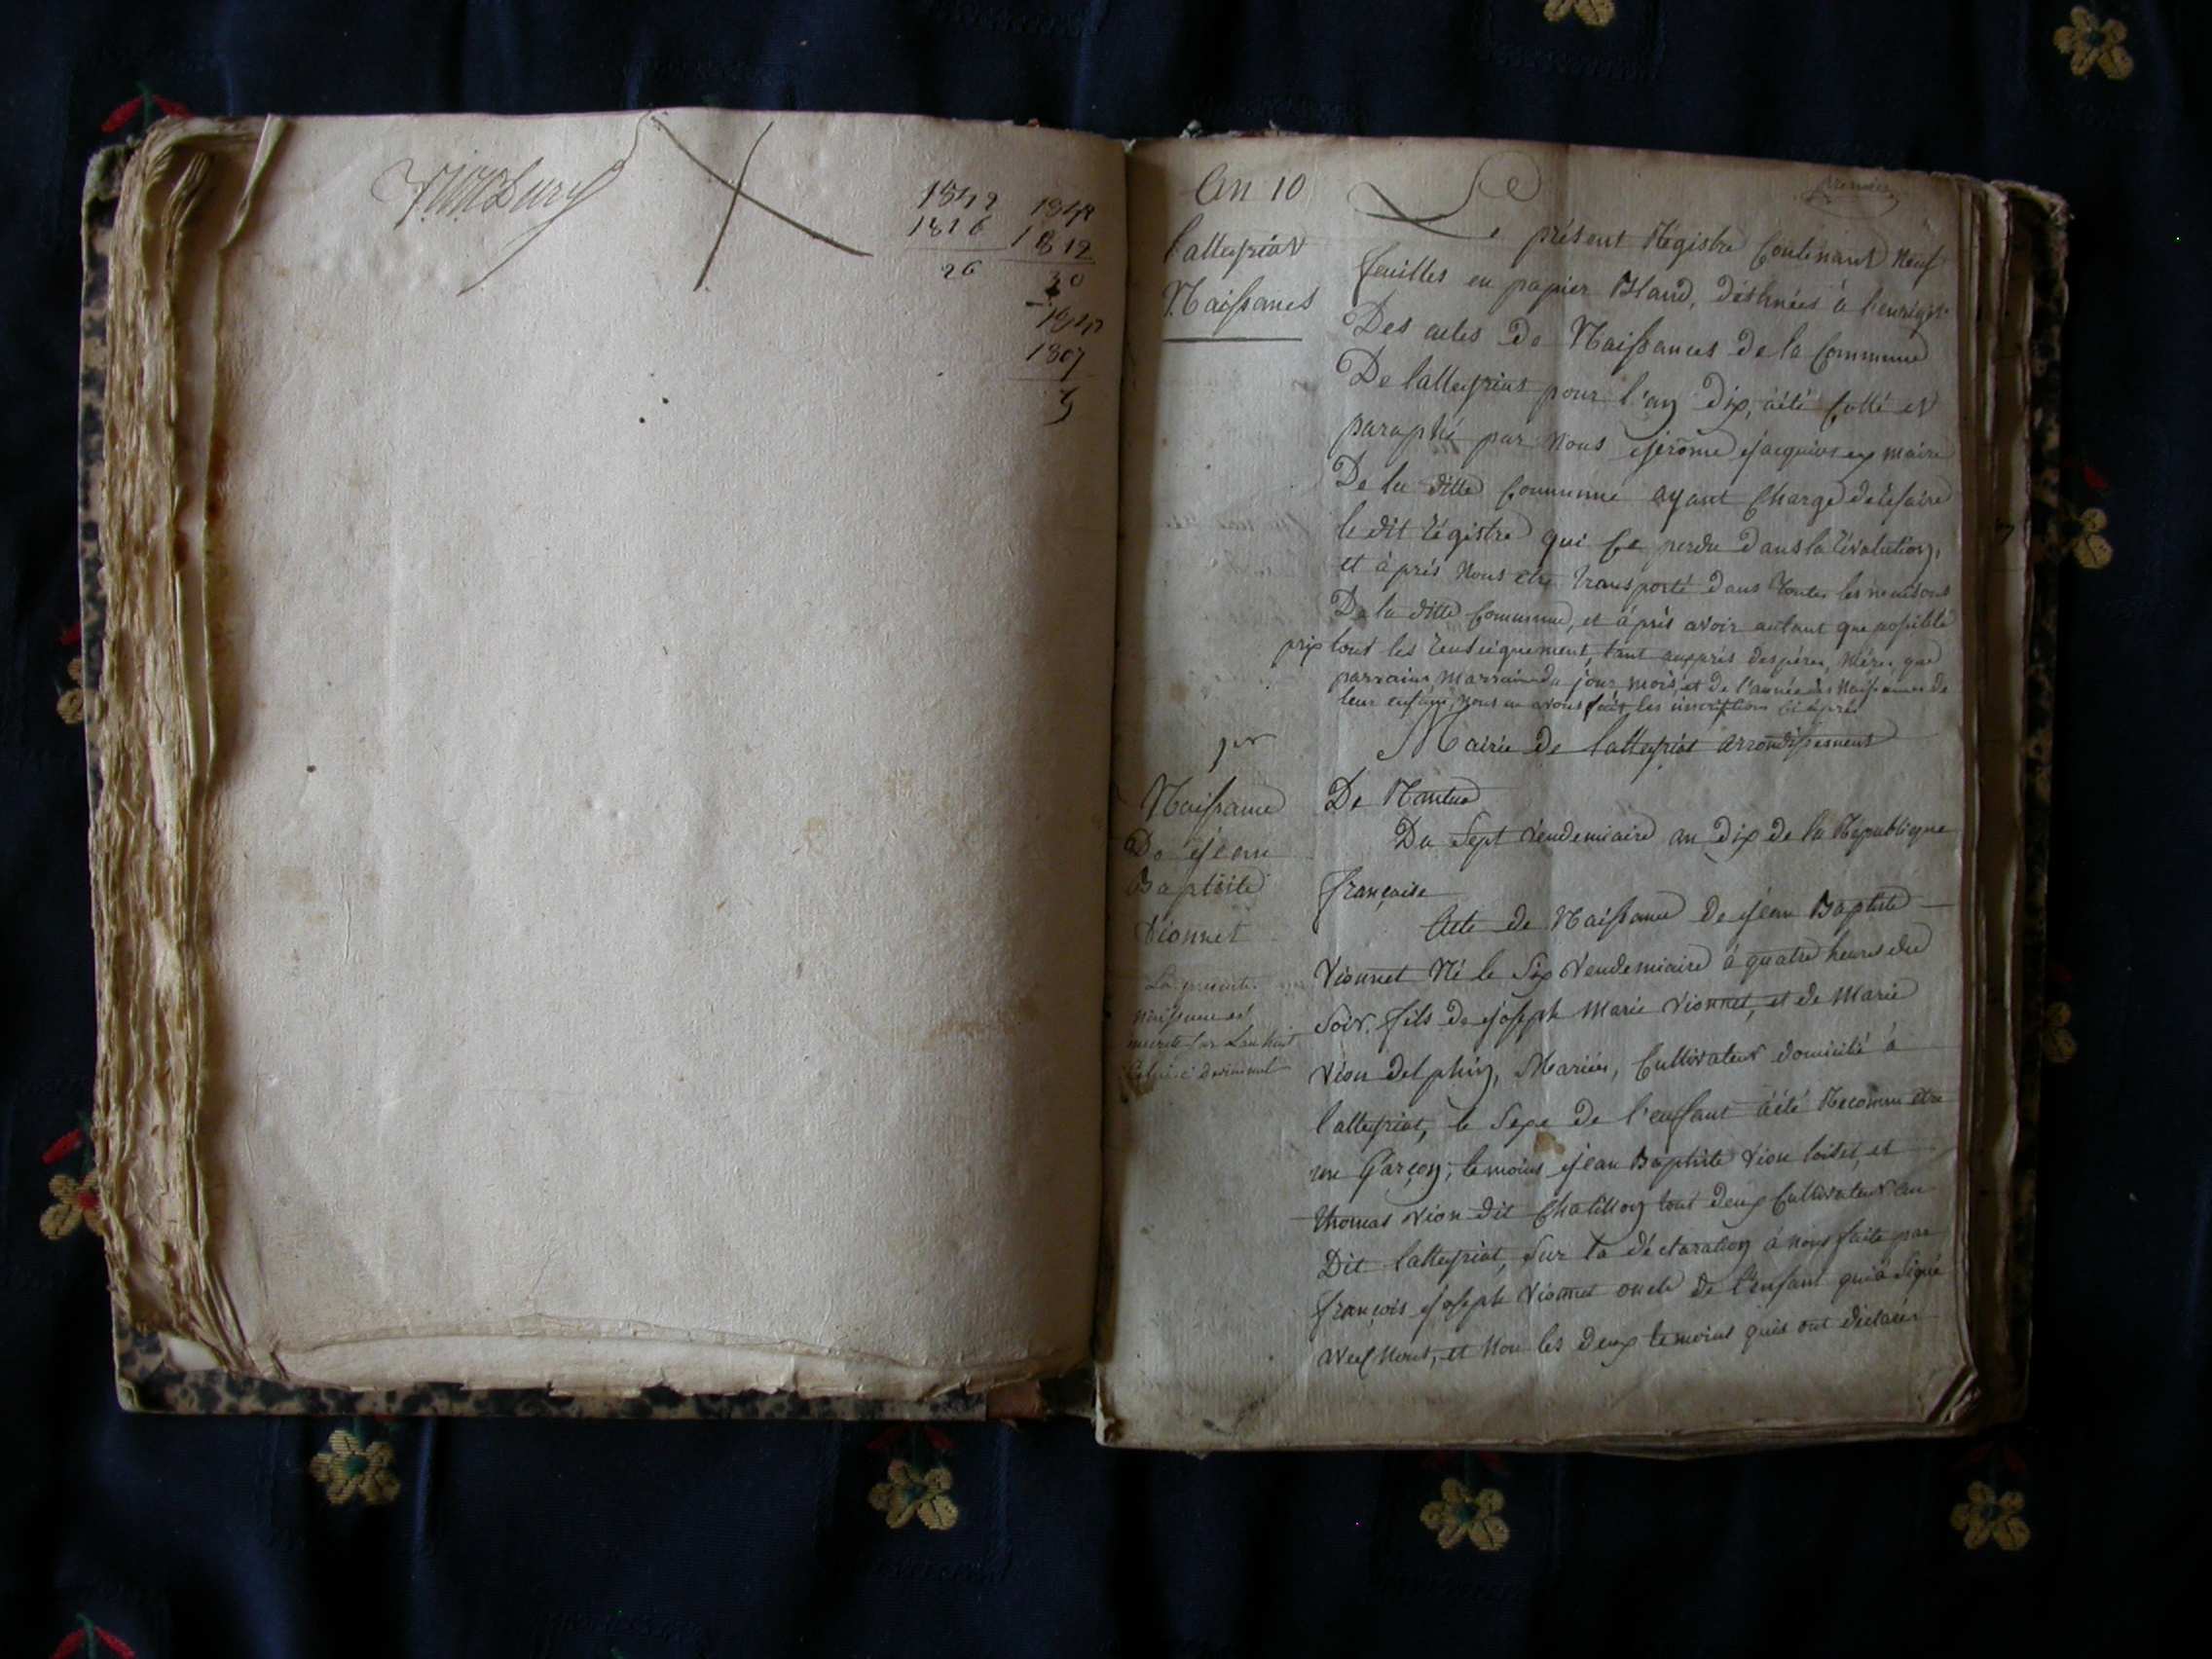 1842 1842
1816 1812
26 30
1807
An 10
Lalleyriat
Naissances
premier
Le présent Régistre Contenant Neuf
feuilles en papier Bland, déstinées à l'enrégt
Des actes De Naissances de la Commune
De Lalleyriat pour l'an Dix, àété Cotté et
paraphé par Nous Jérôme Jacquiot ex maire
De la ditte Commune ayant Charge de réfaire
le dit régistre qui perdu dans la révolution,
et àprés Nous etre transporté dans toutes les maisons
De la ditte Commune, et àprés avoir autant que possible
prix tout les renseignement, tant auprès des pères, Mères que
parrains, marraines du jour mois, et de l'année des Naissances de
leur enfans, nous en avons fait les inscription ci àprés
Mairie de Lalleyriat arrondissement
De Nantua
1er
Naissance
De Jean
Baptiste
Vionnet
La presente
naissance est
Du Sept Vendemiaire an Dix de la République
française
Acte de Naissance de Jean Baptiste
Vionnet Né le Six Vendemiaire à quatre heures du
Soir, fils de Joseph Marie Vionnet, et de Marie
Vion delphin, Mariés, Cultivateur domicilié à
Lalleyriat, le Sexe de l'enfant àété Reconnu etre
un Garçon; temoins Jean Baptiste Vion Loisel, et
thomas Vion dit Chatillon tout deux Cultivateur au
Dit Lalleyriat, Sur la déclaration à nous faite par
françois Joseph Vionnet oncle de l'enfant qui à Signé
avec Nous, et Non les deux temoins quis ont déclarer